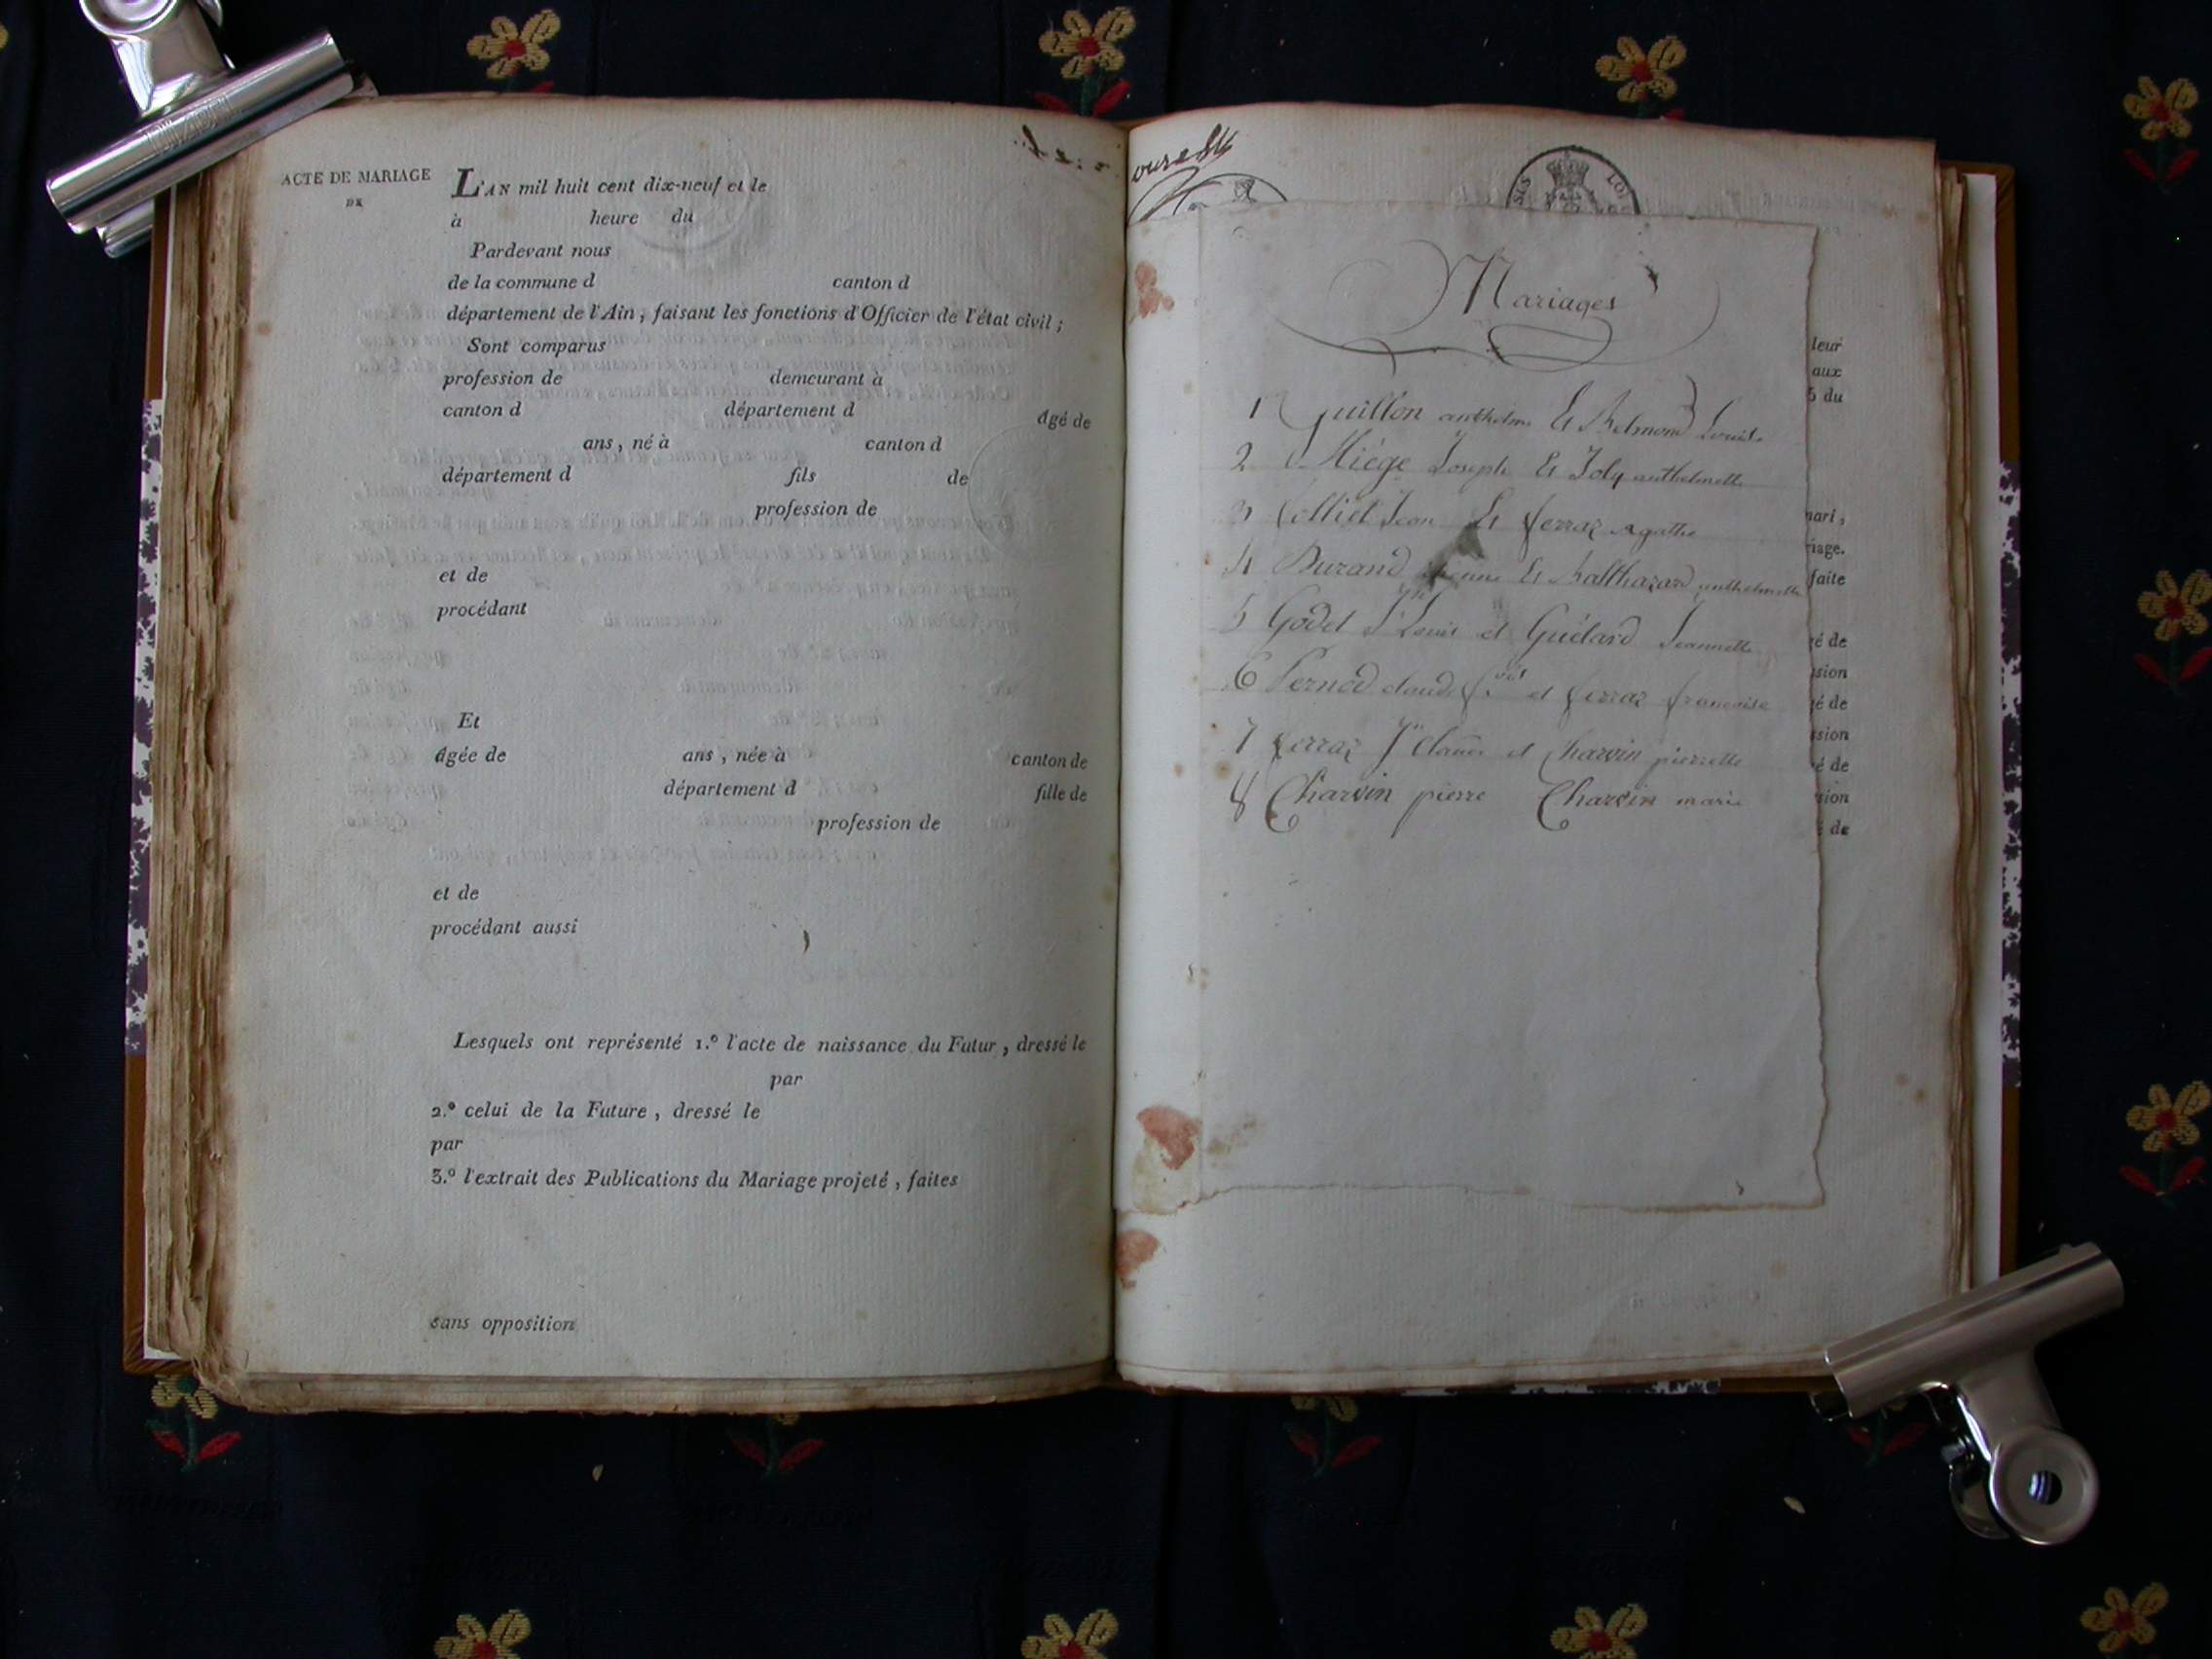 ACTE DE MARIAGE
DE
L'AN mil huit cent dix-neuf et le
à heure du
Pardevant nous
de la commune d canton d
département de l'Ain, faisant les fonctions d'Officier de l'état civil;
Sont comparus
profession de demeurant à
canton d département d âgé de
ans, né à canton d
département d fils de
profession de
et de
procédant
Et
âgée de ans, née à canton de
département d fille de
profession de
et de
procédant aussi
Lesquels ont représenté 1.º l'acte de naissance du Futur, dressé le
par
2.º celui de la Future, dressé le
par
3.º l'extrait des Publications du Mariage projeté, faites
sans opposition
LOI
Mariages
1 Guillon anthelme Et Louise
2 Miège Joseph Et Joly anthelmette
3 Jean Et ferraz Agathe
4 Durand Et Balthazard anthelmette
5 Godet Jn Louis et Guélard Jeannette
6 Pernod claude fçois et ferraz francoise
7 ferraz Jn Claude et Charvin pierrette
8 Charvin pierre Charvin marie
leur
aux
5 du
mari,
riage.
faite
gé de
ssion
gé de
ssion
é de
sion
é de